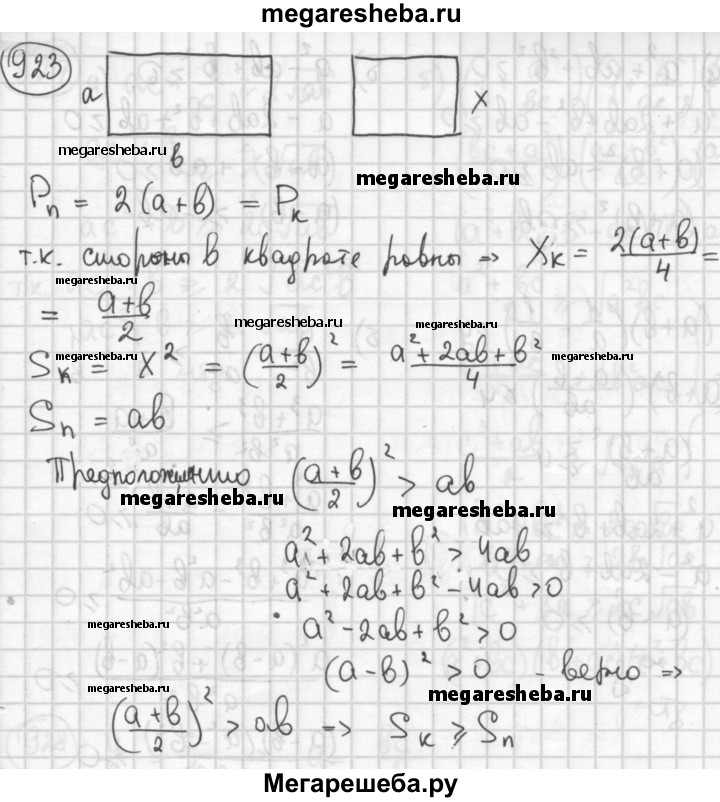 megaresheba.ru
923
a
x
megaresheba.ru
в
megaresheba.ru
Pп = 2(a+в) = Pк
т.к. стороны в квадрате равны => Xк = 2(a+в)/4 =
megaresheba.ru
= a+в/2
megaresheba.ru
megaresheba.ru
megaresheba.ru
Sк = X² = (a+в/2)² = a²+2ab+в²/4
megaresheba.ru
Sп = ab
Предположению (a+в/2)² > ab
megaresheba.ru
megaresheba.ru
a²+2ab+в² > 4ab
a²+2ab+в²-4ab>0
megaresheba.ru
a²-2ab+в²>0
(a-в)²>0 - верно =>
megaresheba.ru
megaresheba.ru
(a+в/2)² > ab => Sк ⩾ Sп
Мегарешеба.ру